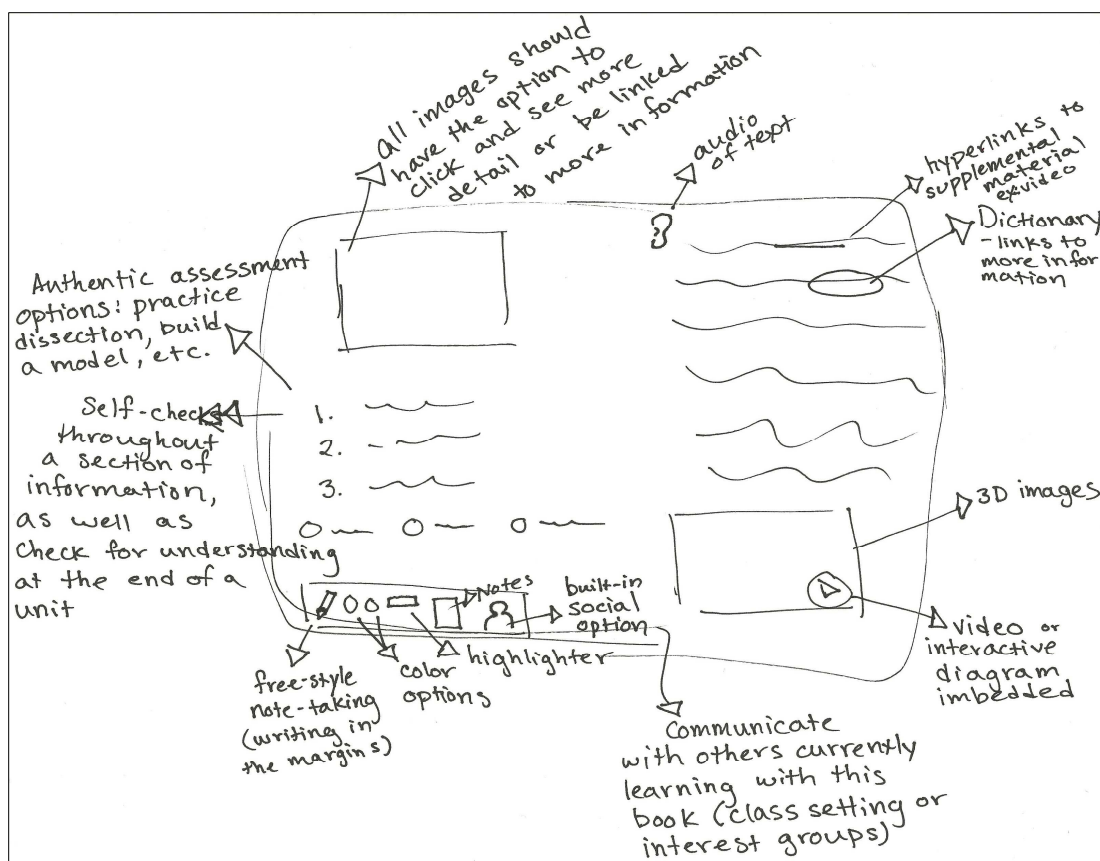 All images should
have the option to
click and see more
detail or be linked
to more information
audio
of text
hyperlinks to
supplemental
material
ex:video
Dictionary
- links to
more infor
mation
Authentic assessment
options: practice
dissection, build
a model, etc.
Self-checks
throughout
a section of
information,
as well as
check for understanding
at the end of a
unit
1.
2.
3.
3D images
Notes
built-in
social
option
video or
interactive
diagram
imbedded
highlighter
color
options
free-style
note-taking
(writing in
the margins)
Communicate
with others currently
learning with this
book (class setting or
interest groups)